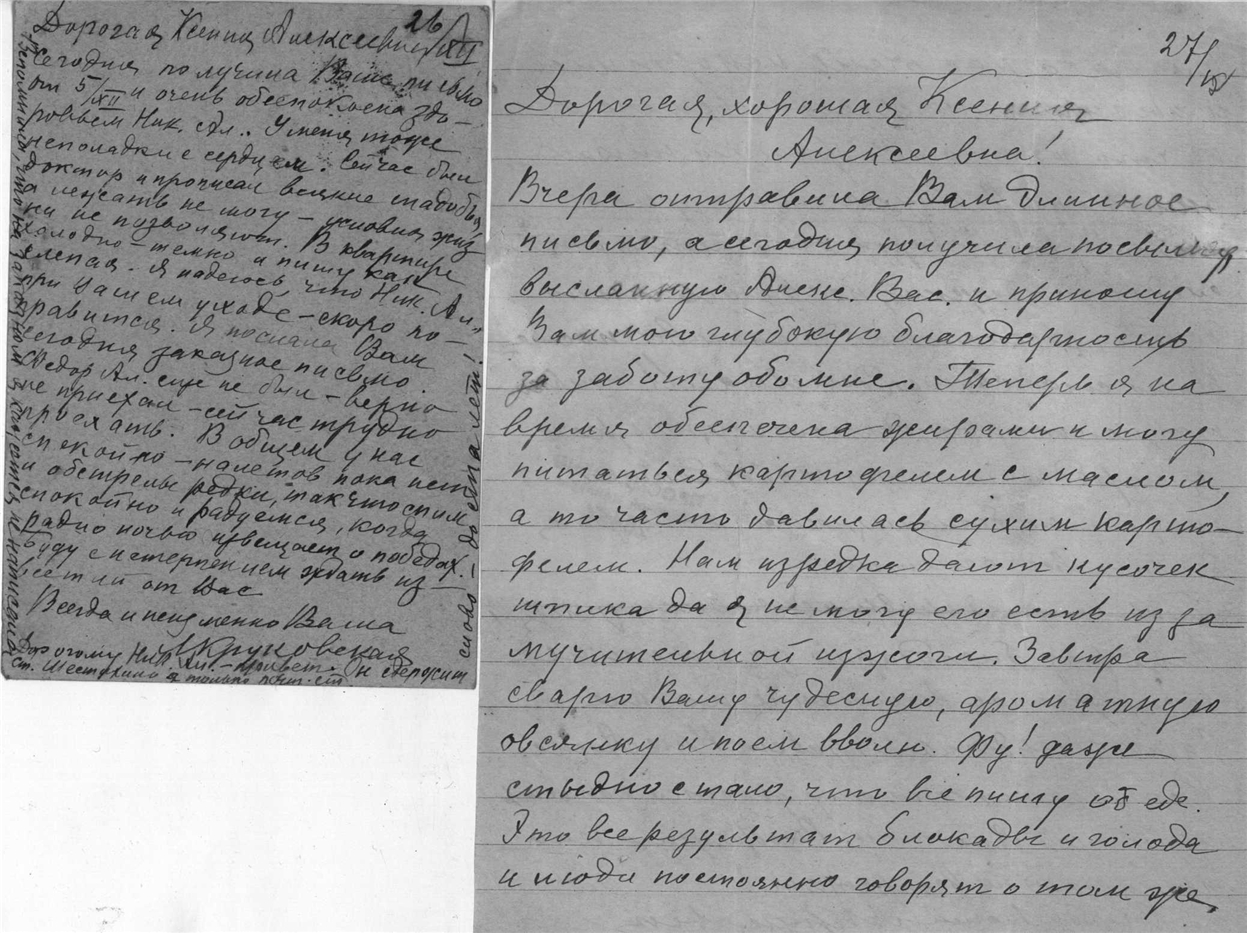 26/XII
Дорогая Ксения Алексеевна
Сегодня получила Ваше письмо
от 5/XII и очень обеспокоена здо-
ровьем Ник. Ал.. У меня тоже
неполадки с сердцем. Сейчас был
доктор и прописал всякие снадобья,
а лежать не могу – условия жиз
ни не позволяют. В квартире
холодно – темно и пишу как
слепая. Я надеюсь, что Ник. Ал.,
при Вашем уходе – скоро по-
правится. Я послала Вам
сегодня заказное письмо.
Федор Ал. еще не был – верно
не приехал – сейчас трудно
проехать. В общем у нас
спокойно – налетов пока нет
и обстрелы редки, так что спим
спокойно и радуемся, когда
радио ночью извещает о победах.
Буду с нетерпением ждать из-
вестий от Вас
Всегда и неизменно Ваша
Круковская
Дорогому Ник. Ал. – привет.
ст. Шестихино а только почт. ст.
слово – до ста лет!
27/IX
Дорогая, хорошая Ксения
Алексеевна!
Вчера отправила Вам длинное
письмо, а сегодня получила посылку
высланную Алекс. Вас. и приношу
Вам мою глубокую благодарность
за заботу обо мне. Теперь я на
время обеспечена жирами и могу
питаться картофелем с маслом,
а то часто давилась сухим карто-
фелем. Нам изредка дают кусочек
шпика да я не могу его есть из за
мучительной изжоги. Завтра
сварю Вашу чудесную, ароматную
овсянку и поем вволю. Фу! даже
стыдно стало, что всё пишу об еде.
Это все результат блокады и голода
и люди постоянно говорят о том же,